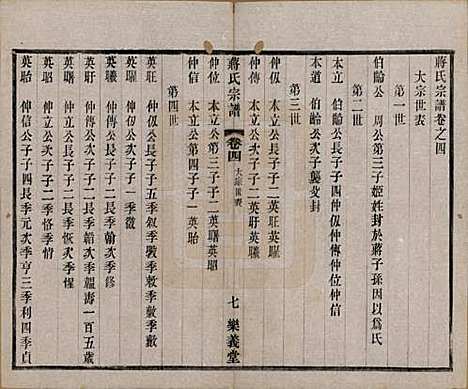 蔣氏宗譜卷之四
大宗世表
第一世
伯齡公 周公第三子姬姓封於蔣子孫因以爲氏
第二世
本立 伯齡公長子子四仲伋仲傳仲位仲信
本道 伯齡公次子襲父封
第三世
仲伋 本立公長子子二英旺英曜
仲傳 本立公次子子二英旺英曦
仲位 本立公第三子子二英曙英昭
仲信 本立公第四子子一英眙
蔣氏宗譜
卷四
大宗世表
七
樂義堂
第四世
英旺 仲伋公長子子四長季敘次季毅
英曜 仲伋公次子子一季徵
英曦 仲傳公長子子二長季翰次季修
英旴 仲傳公次子子二長季韜次季韞壽一百五歲
英曙 仲位公長子子二長季恢次季惺
英昭 仲位公次子子二季恪季情
英眙 仲信公子子四長季元次季亨三季利四季貞